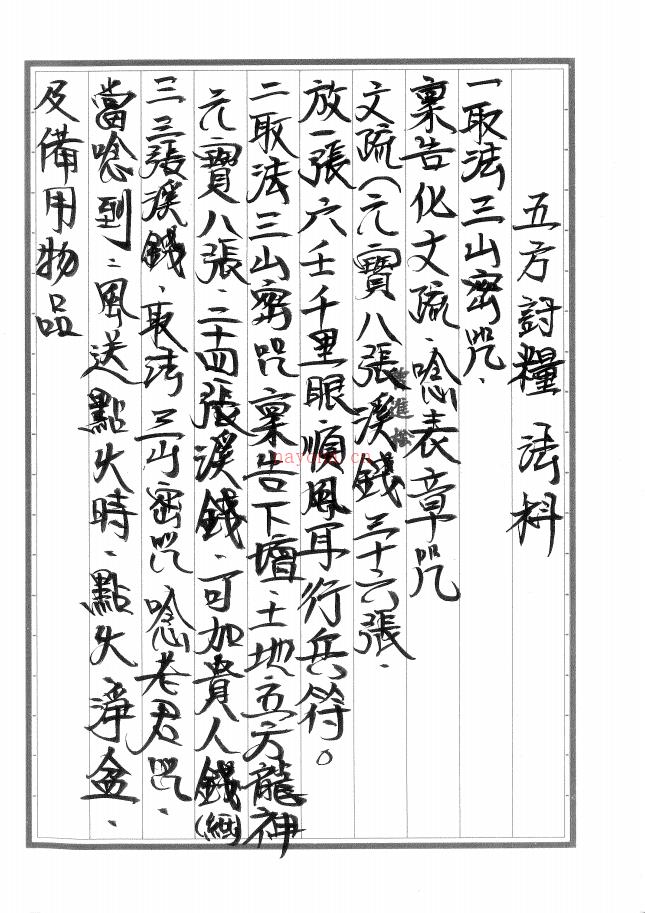 五方討糧 法科
一取法三山密咒、
稟告化文疏、唸表章咒
文疏(元寶八張溪錢三十六張、
放一張六壬千里眼順風耳行兵符。
二取法三山密咒稟告下壇、土地五方龍神
元寶八張、二十四張溪錢、可加貴人錢
三三張溪錢、取法三山密咒、唸老君咒、
當唸到：風送點火時、點火淨盆、
及備用物品
nayona.cn